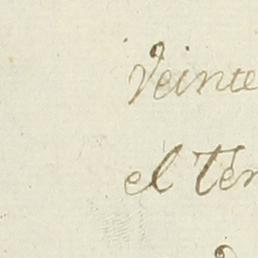 Veinte
el Tér